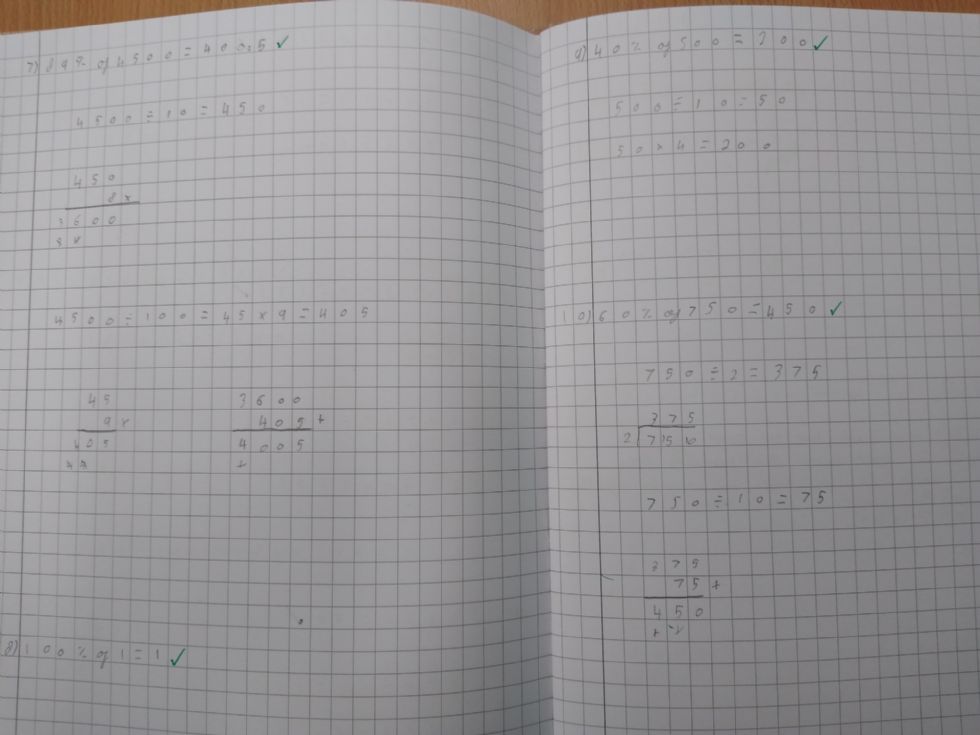 7) 89% of 4500 = 4005 ✓
4500 ÷ 10 = 450
450
8 ×
3600
4500 ÷ 100 = 45 × 9 = 405
45
9 ×
405
3600
405 +
4005
8) 100% of 1 = 1 ✓
9) 40% of 500 = 200 ✓
500 ÷ 10 = 50
50 × 4 = 200
10) 60% of 750 = 450 ✓
750 ÷ 2 = 375
375
2 7150
750 ÷ 10 = 75
375
75 +
450